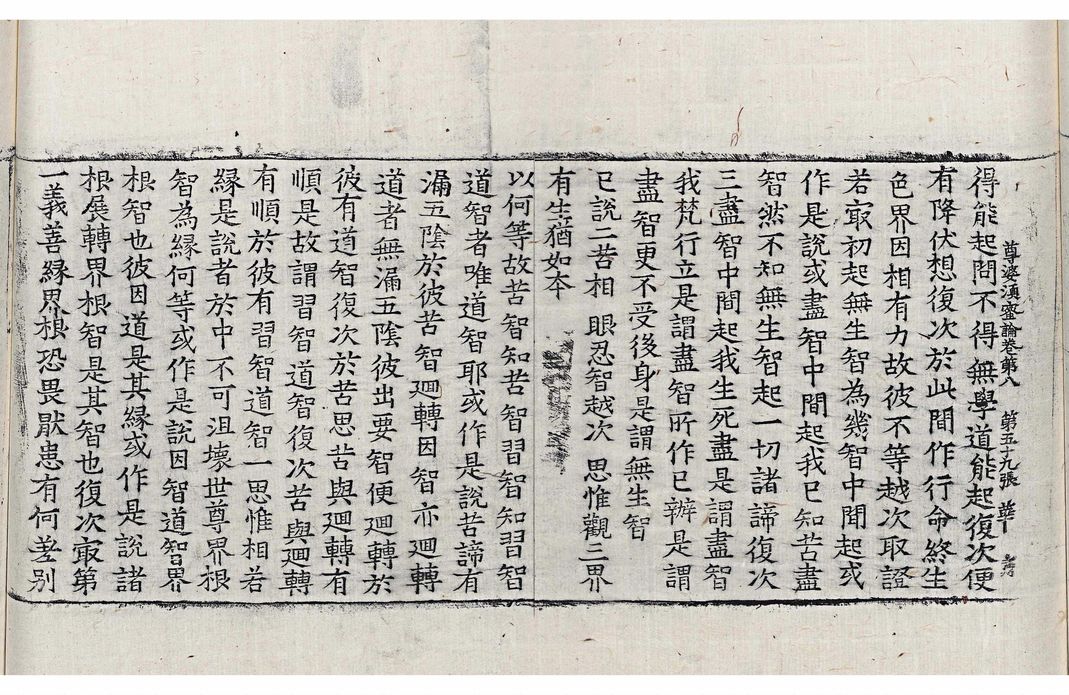 尊婆湏蜜論卷第八 第五十九張 華
得能起問不得無學道能起復次便
有降伏想復次於此間作行命終生
色界因相有力故彼不等越次取證
若㝡初起無生智為幾智中間起或
作是說或盡智中間起我已知苦盡
智然不知無生智起一切諸諦復次
三盡智中間起我生死盡是謂盡智
我梵行立是謂盡智所作已辦是謂
盡智更不受後身是謂無生智
已說二苦相 眼忍智越次 思惟觀三界
有生猶如本
以何等故苦智知苦智習智知習智
道智者唯道智耶或作是說苦諦有
漏五陰於彼苦智迴轉因智亦迴轉
道者無漏五陰彼出要智便迴轉於
彼有道智復次於苦思苦與迴轉有
順是故謂習智道智復次苦與迴轉
有順於彼有習智道智一思惟相若
緣是說者於中不可沮壞世尊界根
智為緣何等或作是說因智道智界
根智也彼因道是其緣或作是說諸
根展轉界根智是其智也復次㝡第
一義善緣界根恐畏厭患有何差別